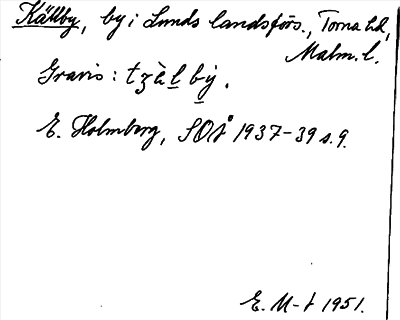 Källby, by i Lunds landsförs., Torna hd,
Malm. l.
Gravis: tʒàl bẏ.
E. Holmberg, SOÅ 1937-39 s. 9.
E. M-t 1951.